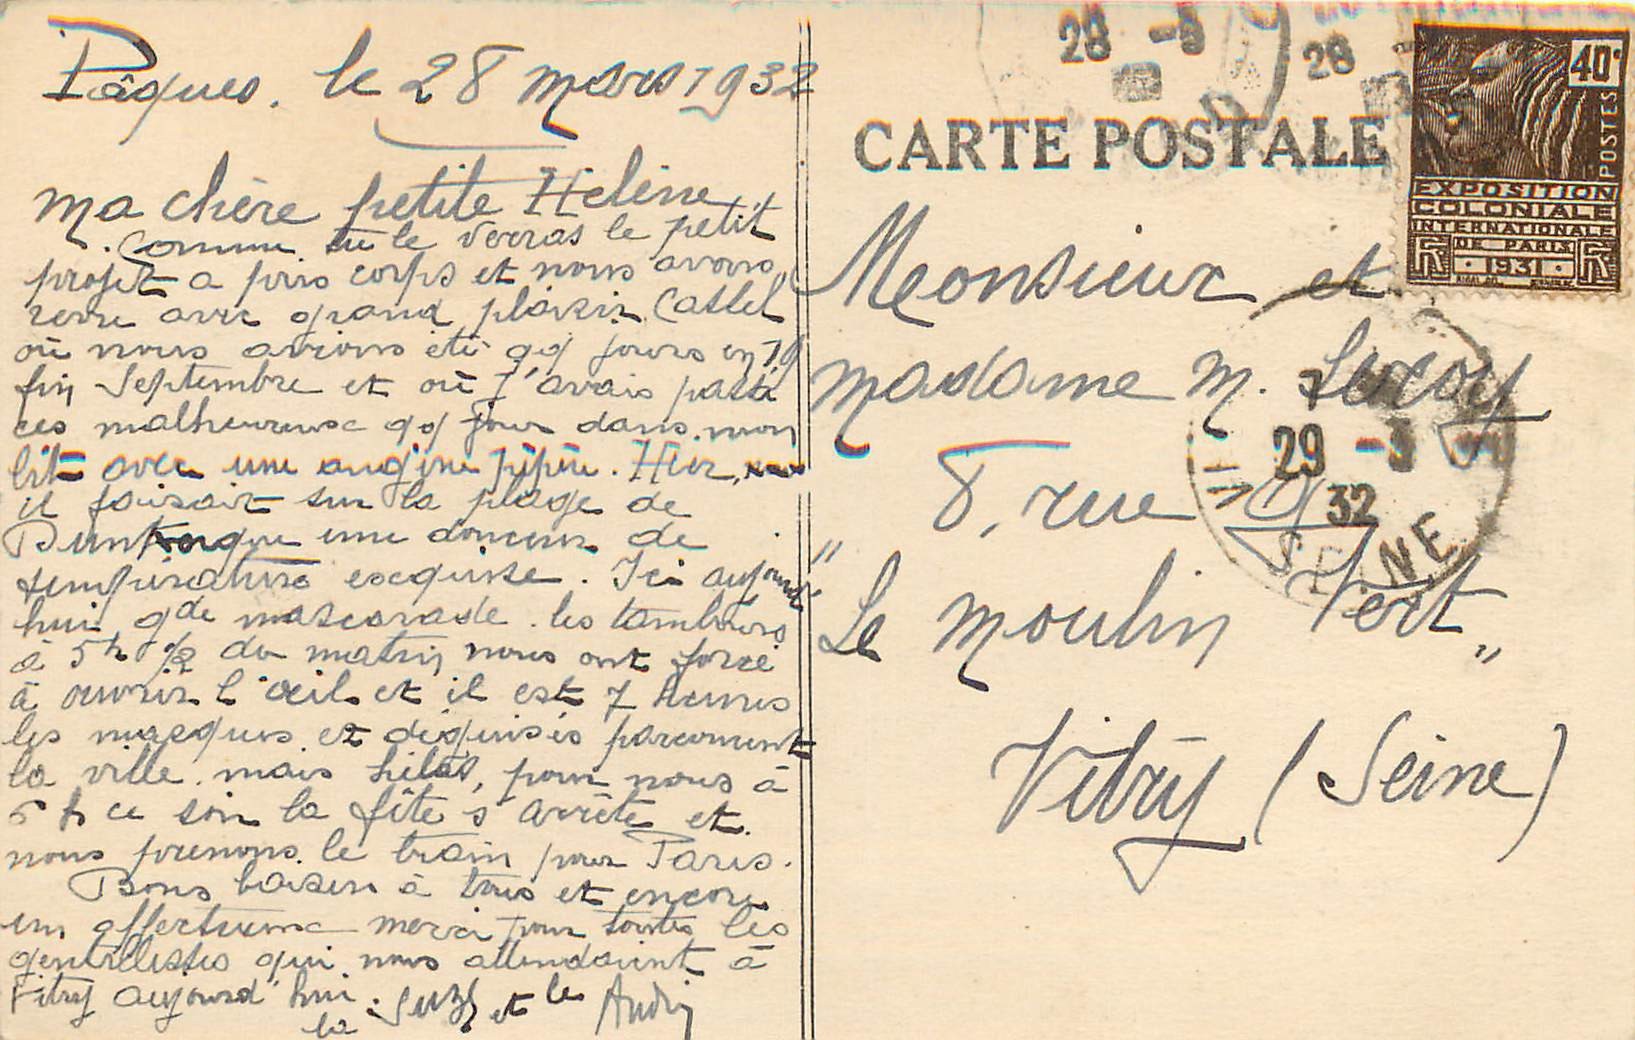 Pâques. le 28 mars 1932
ma chère petite Hélène
Comme tu le verras le petit
projet a pris corps et nous avons
revu avec grand plaisir Cassel
où nous avions été qq jours en 19
fin Septembre et où j'avais passé
ces malheureux qq jours dans mon
lit avec une angine pépère. Hier,
il faisait sur la plage de
Dunkerque une douceur de
température exquise. Ici aujourd'
hui gde mascarade. les tambours
à 5h ½ du matin nous ont forcé
à ouvrir l'œil et il est 7 heures
les masques et déguisés parcourent
la ville. mais hélas, pour nous à
6 h ce soir la fête s'arrête et
nous prenons le train pour Paris.
Bons baisers à tous et encore
un affectueux merci pour toutes les
gentillesses qui nous attendaient à
Vitry aujourd'hui.
la Suzy et le André
CARTE POSTALE
28 -3
28
40c
POSTES
EXPOSITION
COLONIALE
INTERNATIONALE
DE PARIS
1931
RF RF
Monsieur et
madame M.
29 -3
32
SEINE
8, rue
"Le moulin Vert"
Vitry (Seine)